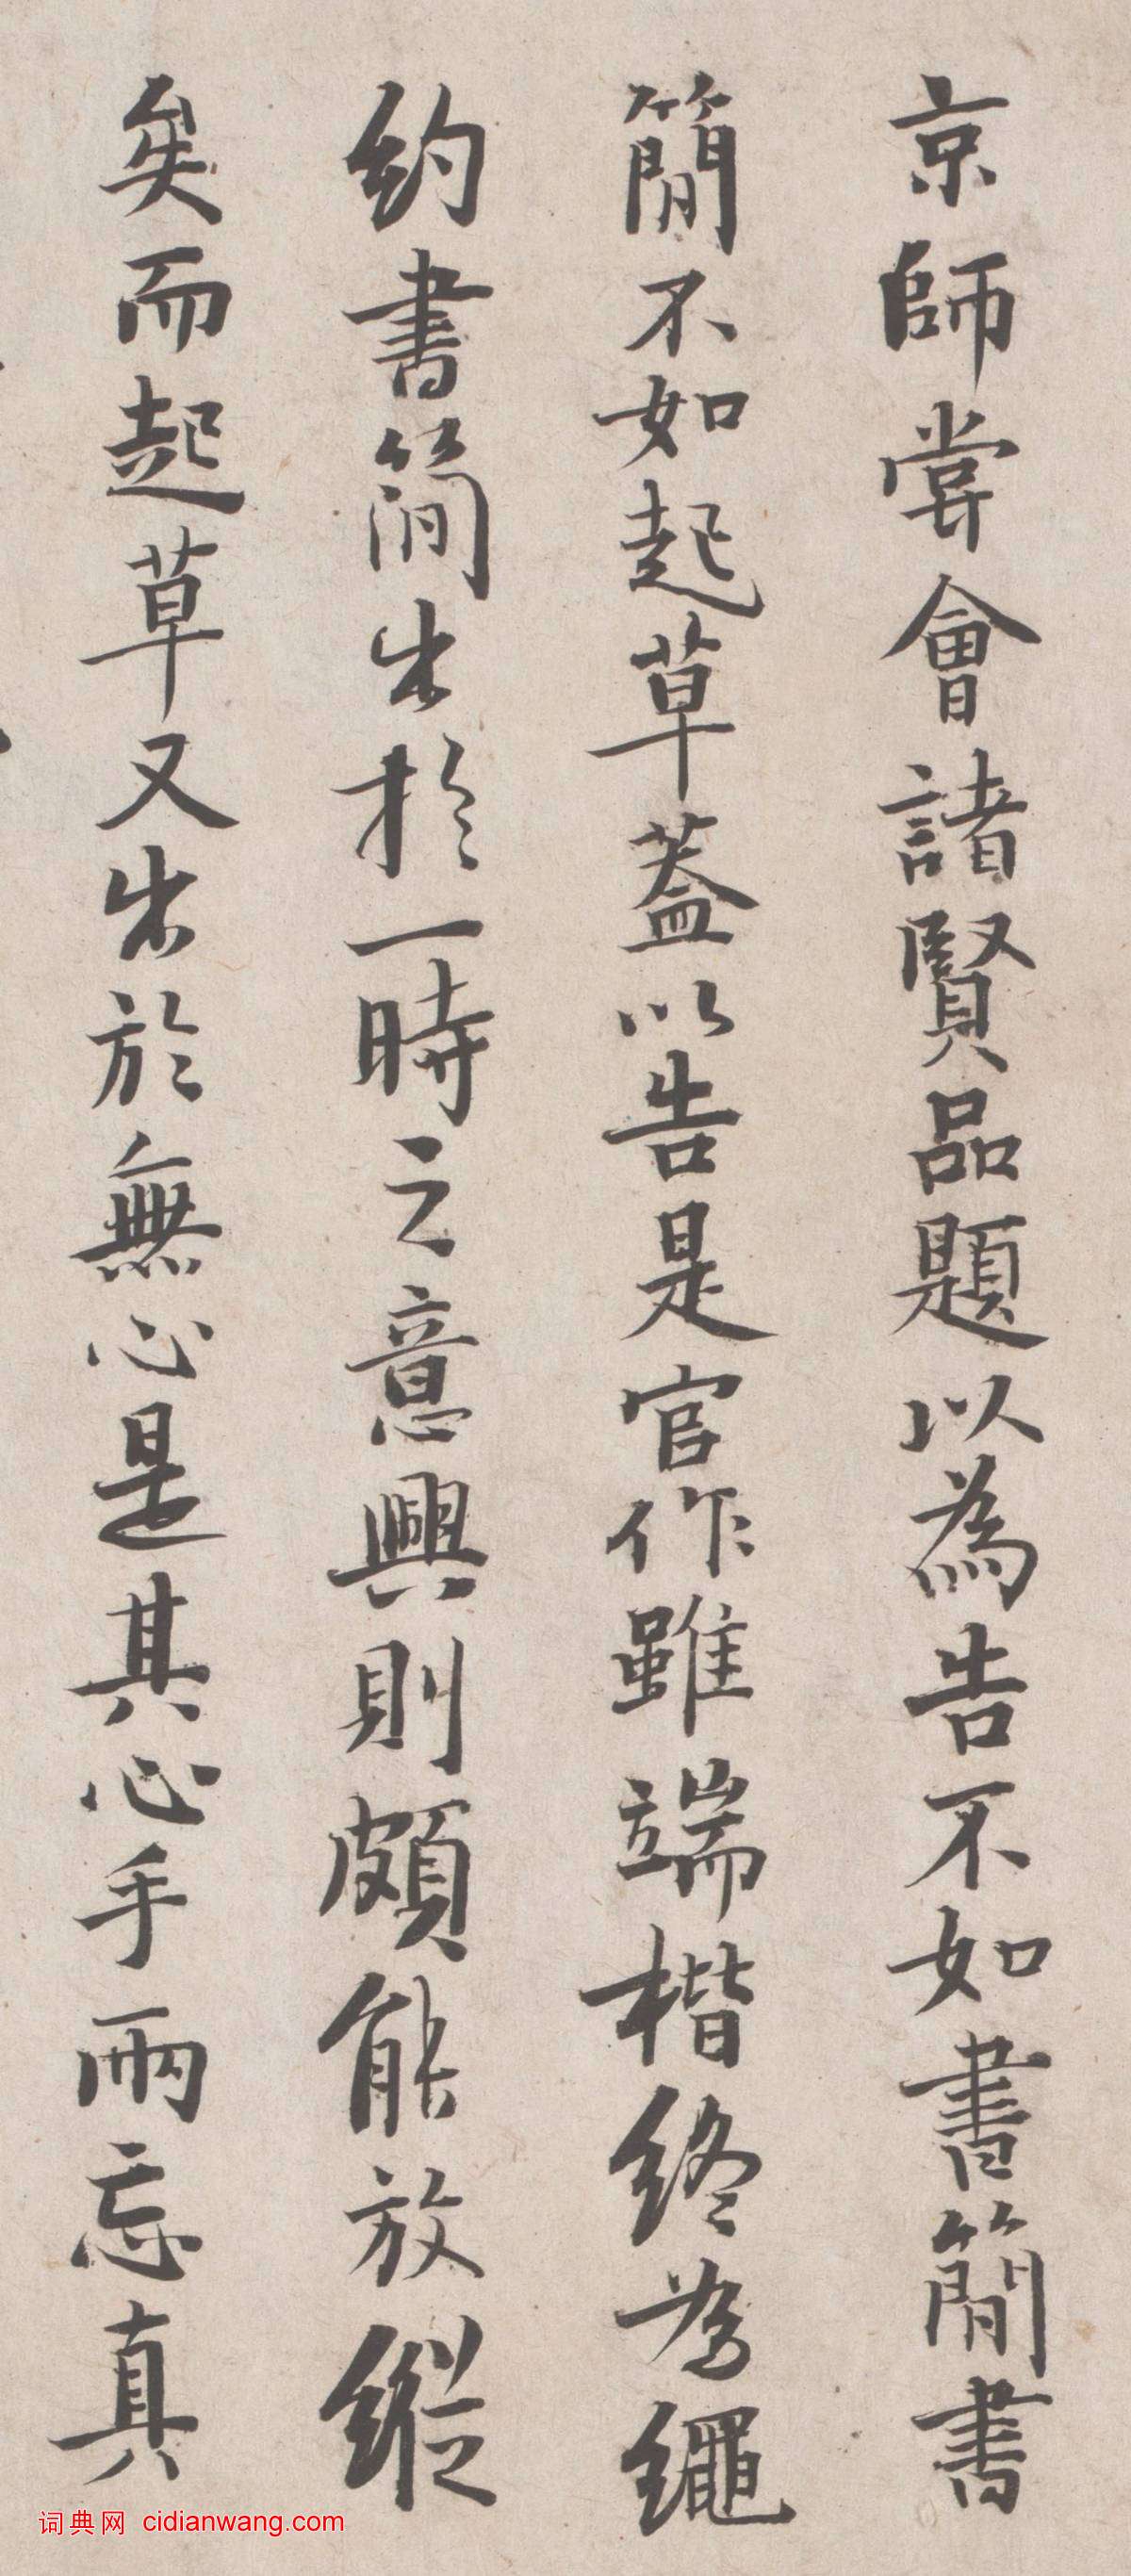 京師嘗會諸賢品題以為告不如書簡書
簡不如起草蓋以告是官作雖端楷終為繩
約書簡出於一時之意興則頗能放縱
矣而起草又出於無心是其心手兩忘真
词典网 cidianwang.com